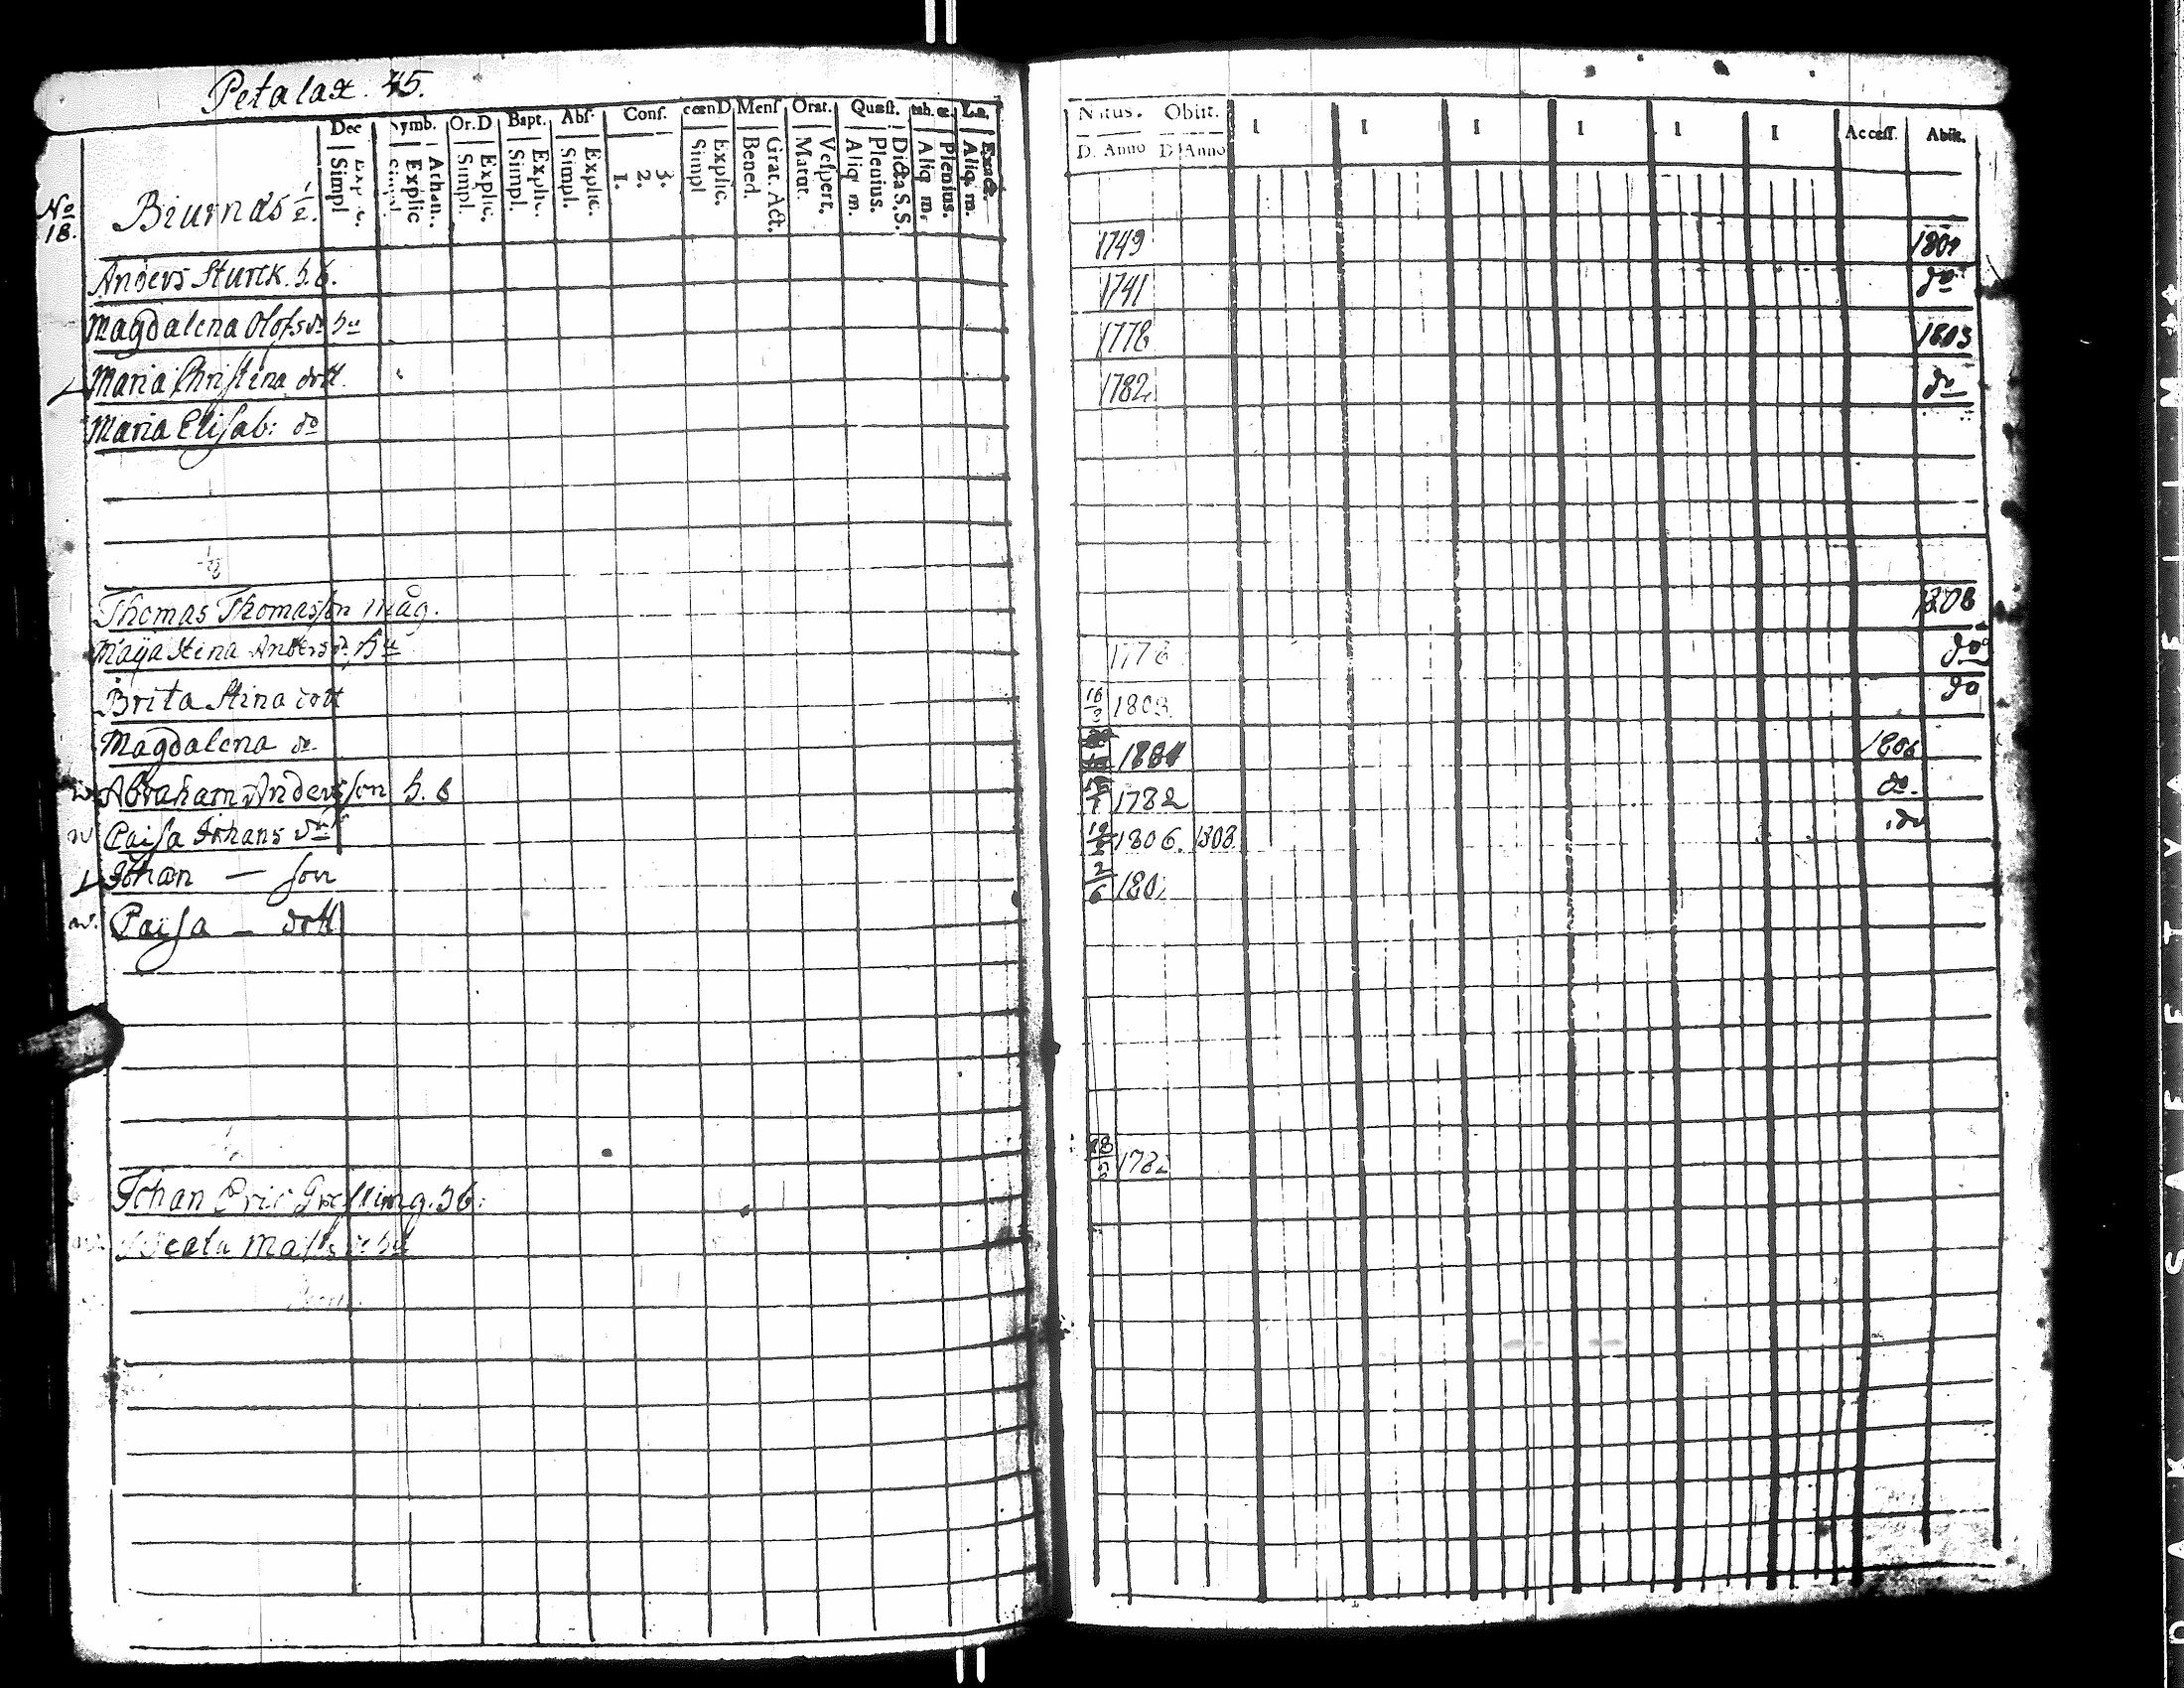 Petalax. 45.
Dec Symb. Or.D Bapt. Abs. Conf. cœnD Mens Orat. Quæst. tab. œ. La.
Simpl Explic Athan. Simpl. Explic. Simpl. Explic. Simpl. Explic. 1. 2. 3. Simpl Explic. Bened. Grat. Act. Matut. Vespert. Aliq m. Plenius. Dicta S.S. Aliq m. Plenius. Aliq. m. Exacte.
No 18. Biurnäs 1/2.
Anders Sturck. h.b.
Magdalena Olofs dr hu
Maria Christina dott.
Maria Elisab: do
Thomas Thomasson måg.
Maja Stina Anders d. hu
Brita Stina dott
Magdalena do.
Abraham Andersson h. b
Caisa Johans dr
Johan — son
Caisa — dott
Johan Eric Grefling. hb:
Beata
Natus. Obiit. I I I I I I Access. Abiit.
D. Anno D Anno
1749 1801
1741 do
1778 1803
1782 do
1808
1778 do
16/3 1803 do
1806
1782 do.
1806. 1808 do
2/6 180
178